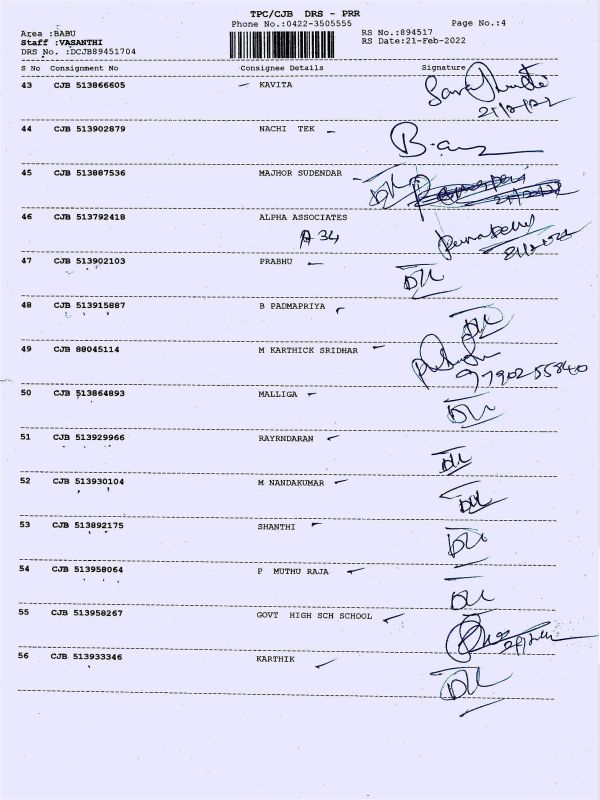 TPC/CJB DRS - PRR
Phone No.:0422-3505555 Page No.:4
Area :BABU RS No.:894517
Staff :VASANTHI RS Date:21-Feb-2022
DRS No. :DCJB89451704
S No Consignment No Consignee Details Signature
43 CJB 513866605 KAVITA
44 CJB 513902879 NACHI TEK
45 CJB 513887536 MAJHOR SUDENDAR
46 CJB 513792418 ALPHA ASSOCIATES
A 34
47 CJB 513902103 PRABHU
48 CJB 513915887 B PADMAPRIYA
49 CJB 88045114 M KARTHICK SRIDHAR
9790255840
50 CJB 513864893 MALLIGA
51 CJB 513929966 RAYRNDARAN
52 CJB 513930104 M NANDAKUMAR
53 CJB 513892175 SHANTHI
54 CJB 513958064 P MUTHU RAJA
55 CJB 513958267 GOVT HIGH SCH SCHOOL
56 CJB 513933346 KARTHIK